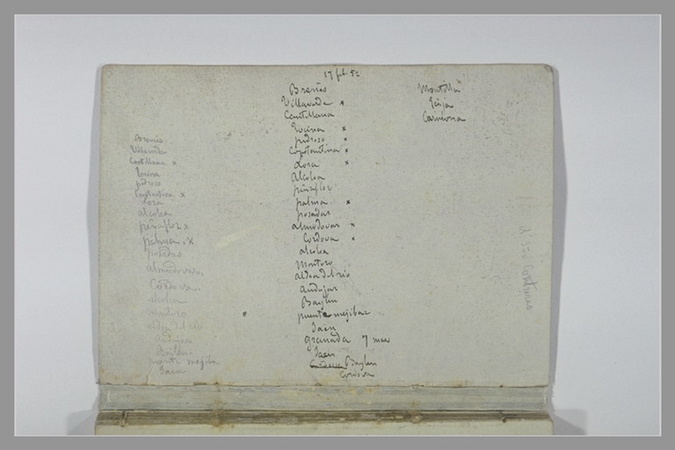 17 feb. 52
Brenès
Villaverde x
Cantillana
Tocina x
pedroso x
Constantina x
Lora x
Alcolea
peñaflor
palma x
posadas
almodovar x
Cordova x
alcolea
Montoro
aldea del rio
andujar
Baylen
puente mejibar
Jaen
granada 7 mar
Jaen
Baylen
Cordova
Montilla
Ecija
Carmona
Brenès
Villaverde
Cantillana x
Tocina
pedroso
Constantina x
Lora
alcolea
peñaflor x
palma x
posadas
almodovar
Cordova
alcolea
Montoro
aldea del rio
andujar
Bailen
puente mejibar
Jaen